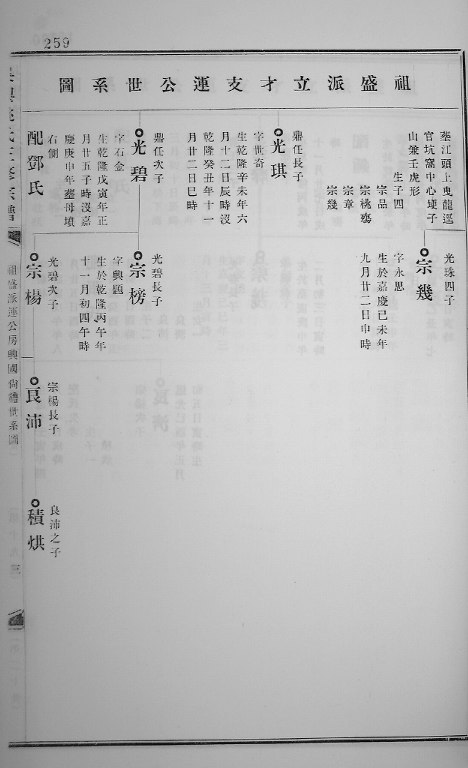 259
祖盛派立才支運公世系圖
塟江頭上曳龍逕
官坑窩中心埂子
山兼壬虎形
生子四
宗品
宗桃殤
宗章
宗幾
鼎任長子
光琪
字世奇
生乾隆辛未年六
月十二日辰時沒
乾隆癸丑年十一
月廿二日巳時
鼎任次子
光碧
字石金
生乾隆戊寅年正
月廿五子時沒嘉
慶庚申年塟母墳
右側
配鄧氏
光珠四子
宗幾
字永思
生於嘉慶己未年
九月廿二日申時
光碧長子
宗榜
字興題
生於乾隆丙午年
十一月初四午時
光碧次子
宗楊
宗楊長子
良沛
良沛之子
積烘
祖盛派運公房興國衙鐀世系圖
三